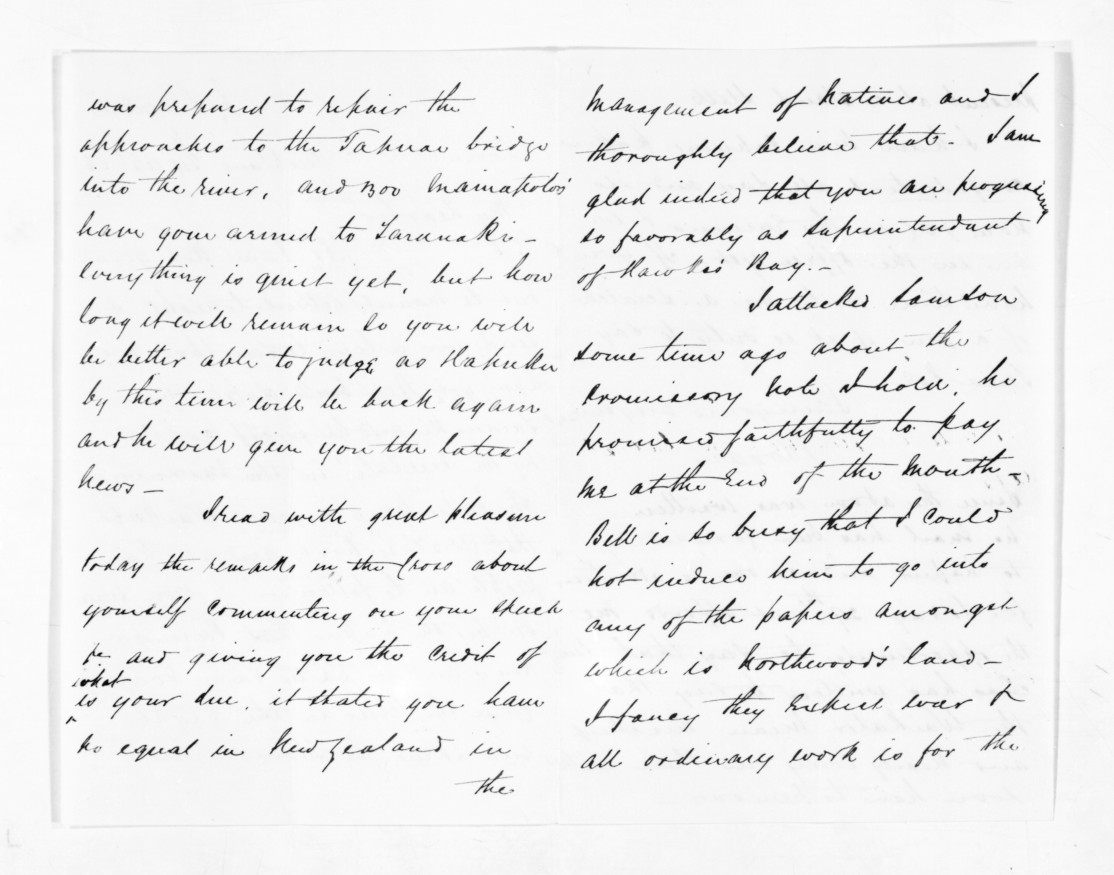 was prepared to repair the
approaches to the Tapuae bridge
into the river, and 300 Maniapotos
have gone armed to Taranaki -
Everything is quiet yet, but how
long it will remain so you will
be better able to judge as Hapuku
by this time will be back again
and he will give you the latest
news -
I read with great pleasure
today the remarks in the Cross about
yourself commenting on your speech
&c and giving you the credit of
what
is your due, it stated you have
no equal in New Zealand in
the
management of Natives and I
thoroughly believe that - I am
glad indeed that you are progressing
so favorably as Superintendant
of Hawke's Bay. -
I attacked Samson
some time ago about the
Promissory Note I hold, he
promised faithfully to pay
me at the End of the Month -
Bell is so busy that I could
not induce him to go into
any of the papers amongst
which is Northwood's land -
I fancy they Expect war &
all ordinary work is for the